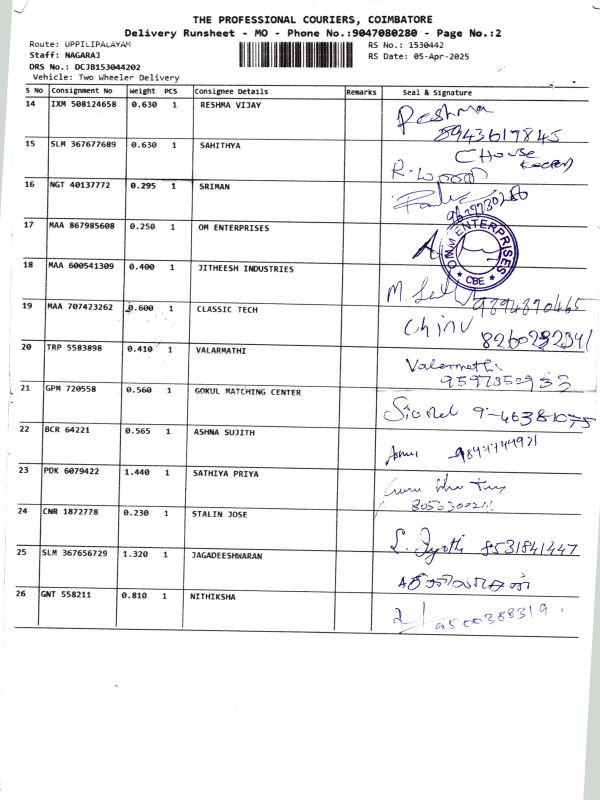 THE PROFESSIONAL COURIERS, COIMBATORE
Delivery Runsheet - MO - Phone No.:9047080280 - Page No.:2
Route: UPPILIPALAYAM
RS No.: 1530442
Staff: NAGARAJ
RS Date: 05-Apr-2025
DRS No.: DCJB153044202
Vehicle: Two Wheeler Delivery
S No Consignment No Weight PCS Consignee Details Remarks Seal & Signature
14 IXM 508124658 0.630 1 RESHMA VIJAY Reshma
8943617845
15 SLM 367677689 0.630 1 SAHITHYA C House
R.
16 NGT 40137772 0.295 1 SRIMAN
17 MAA 867985608 0.250 1 OM ENTERPRISES
OMM ENTERPRISES
* CBE *
18 MAA 600541309 0.400 1 JITHEESH INDUSTRIES
M. 9894870465
19 MAA 707423262 0.600 1 CLASSIC TECH Chinu
8260292341
20 TRP 5583898 0.410 1 VALARMATHI Valarmathi
21 GPM 720558 0.560 1 GOKUL MATCHING CENTER
22 BCR 64221 0.565 1 ASHNA SUJITH
23 PDK 6079422 1.440 1 SATHIYA PRIYA
24 CNR 1872778 0.230 1 STALIN JOSE
L. Jyothi 8531841447
25 SLM 367656729 1.320 1 JAGADEESHWARAN
26 GNT 558211 0.810 1 NITHIKSHA
9500388319